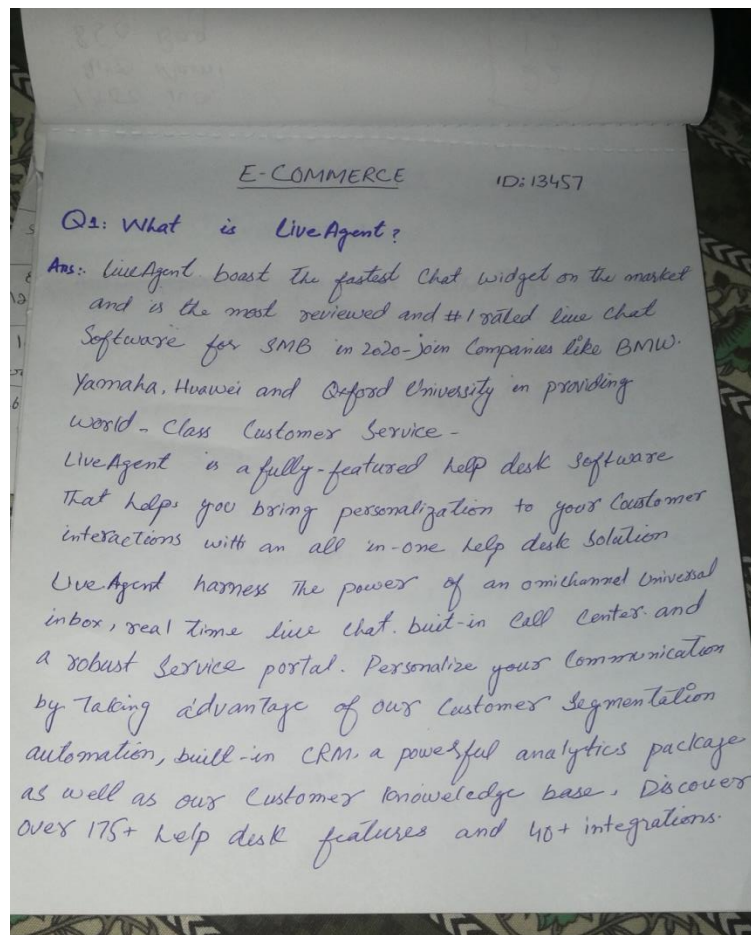 E-COMMERCE ID: 13457
Q1: What is LiveAgent?
Ans:- LiveAgent boast the fastest Chat widget on the market
and is the most reviewed and #1 rated live chat
Software for SMB in 2020-join Companies like BMW.
Yamaha, Huawei and Oxford University in providing
World-Class Customer Service-
LiveAgent is a fully-featured help desk software
That helps you bring personalization to your Coustomer
interactions with an all in-one help desk Solution
LiveAgent harness The power of an omichannel Universal
inbox, real time live chat. buit-in Call Center. and
a robust Service portal. Personalize your Communication
by Taking advantage of our Customer Segmentation
automation, built-in CRM, a powerful analytics package
as well as our Customer Knoweledge base. Discover
over 175+ help desk features and 40+ integrations.